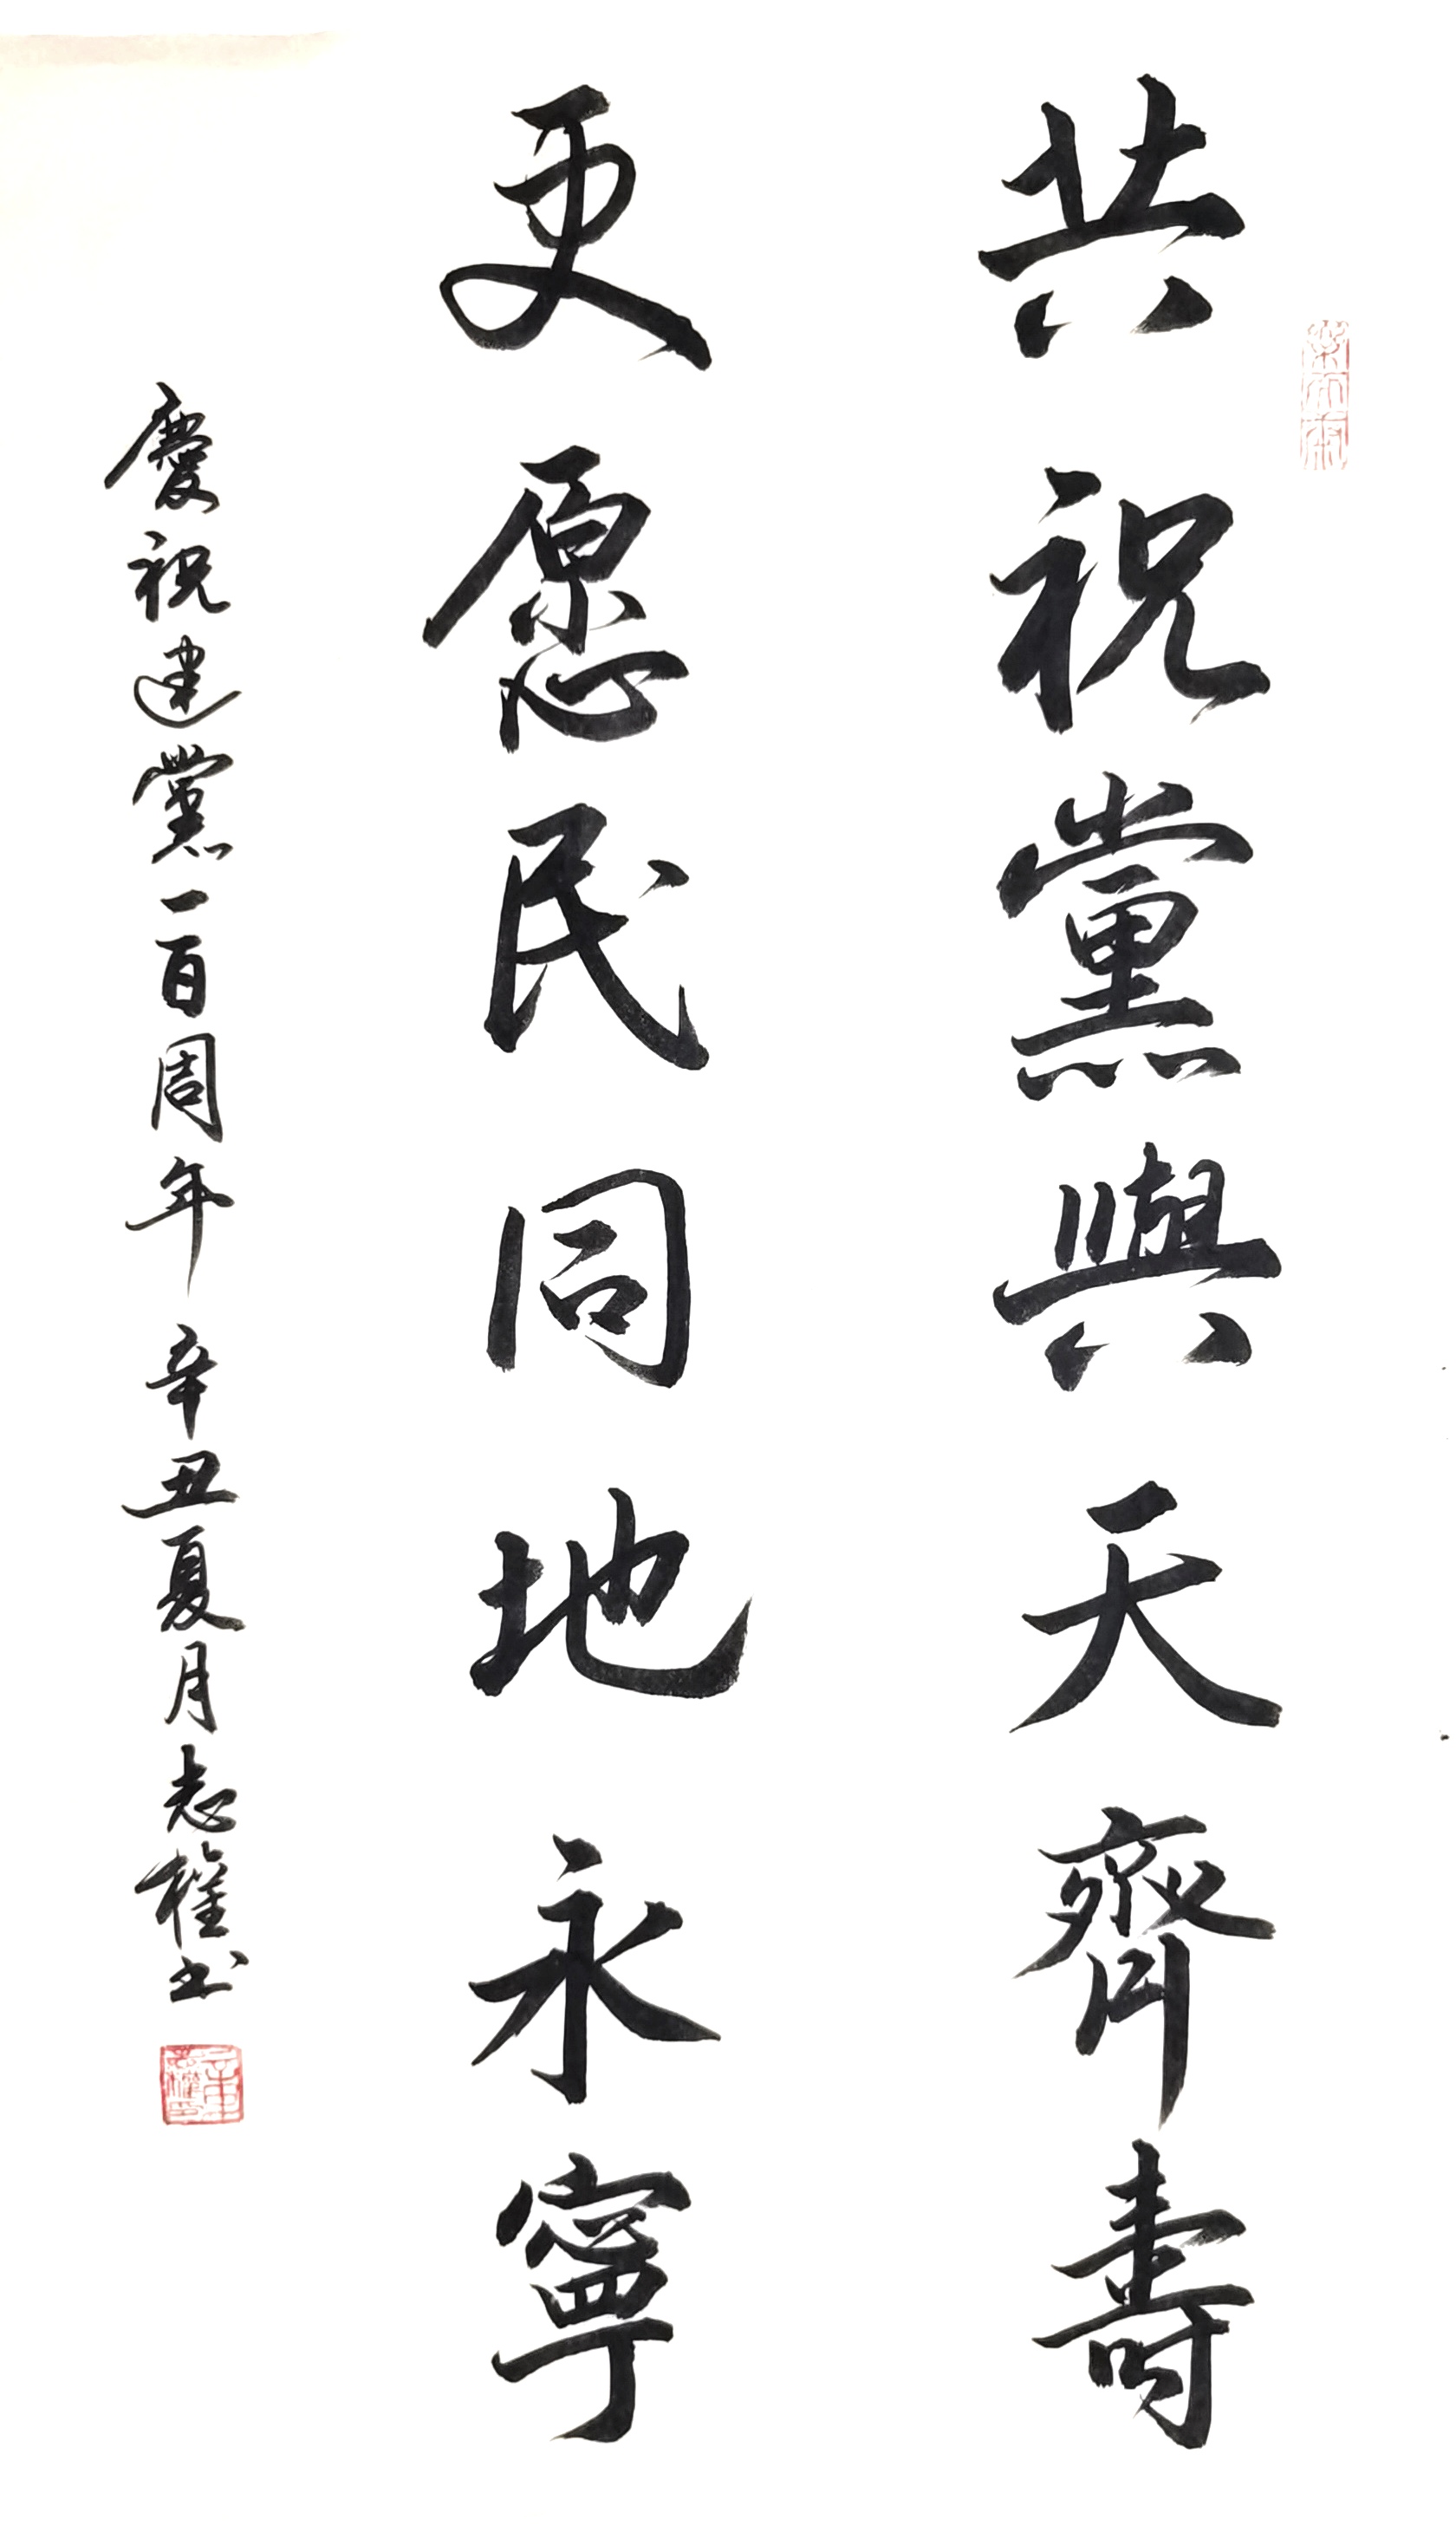 共祝黨與天齊壽
更愿民同地永寧
慶祝建黨一百周年 辛丑夏月志權书